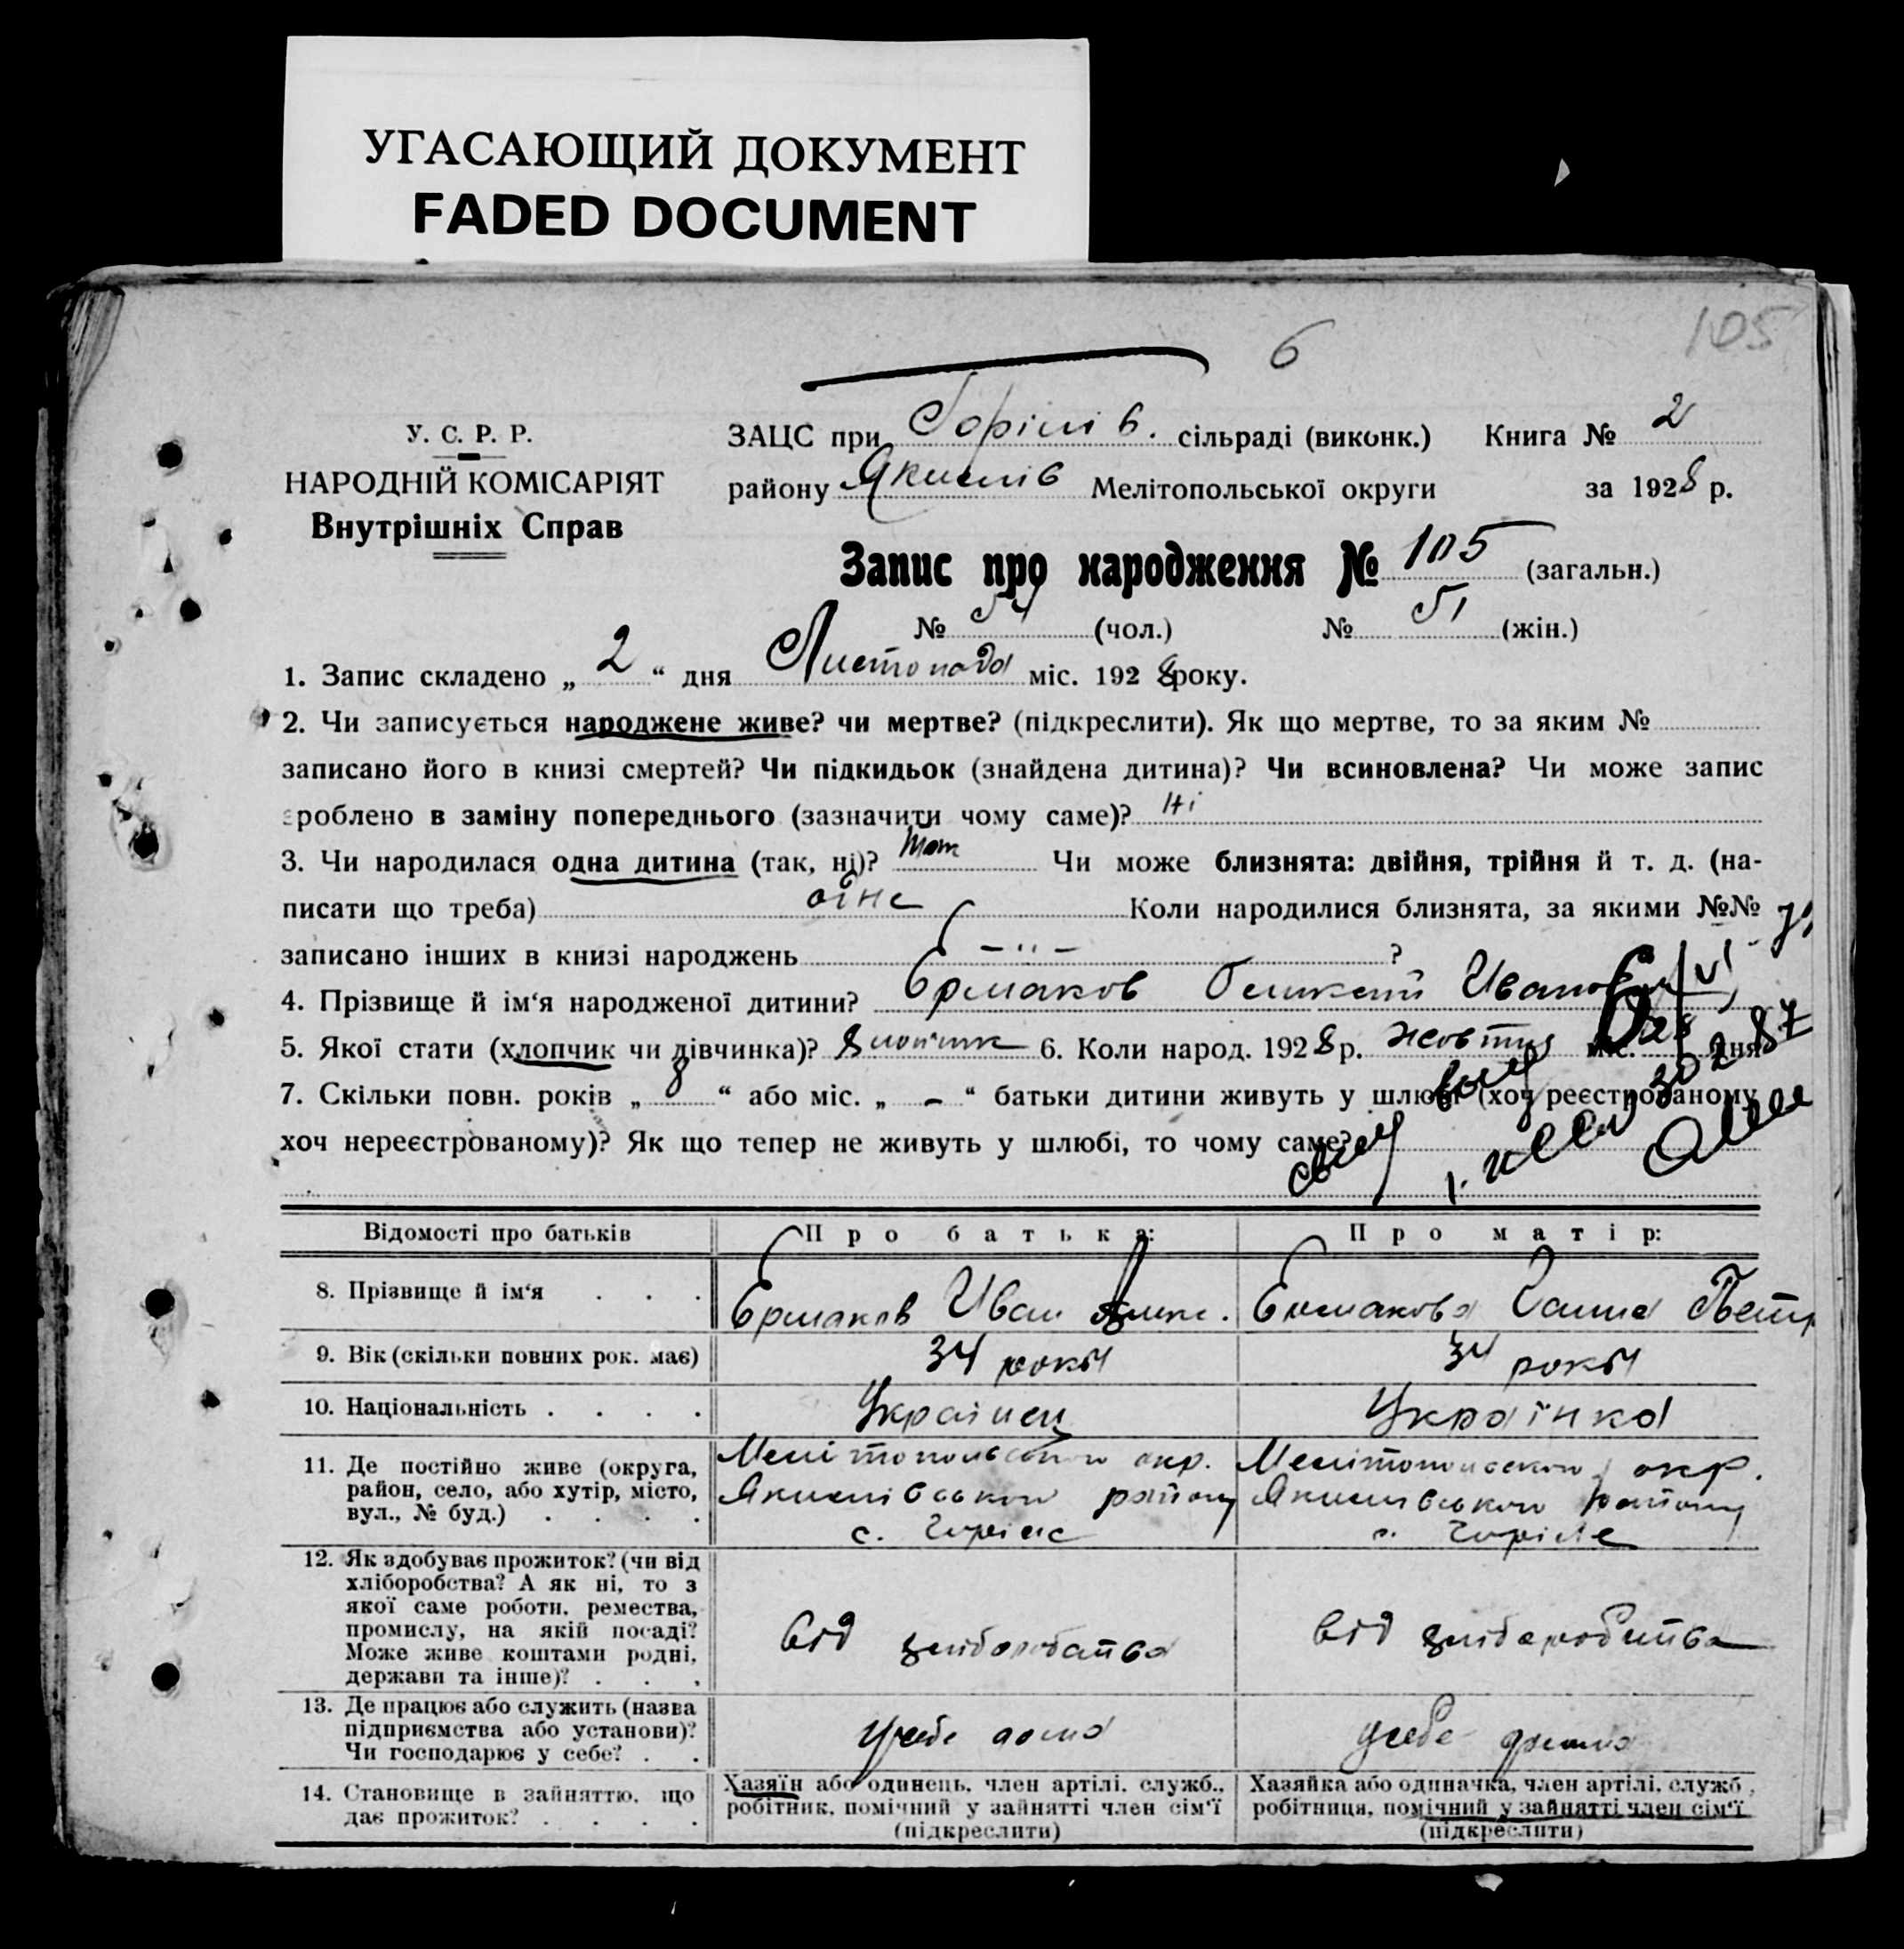 УГАСАЮЩИЙ ДОКУМЕНТ
FADED DOCUMENT
105
6
У. С. Р. Р.
НАРОДНІЙ КОМІСАРІЯТ
Внутрішніх Справ
ЗАЦС при Горілів. сільраді (виконк.) Книга № 2
району Якимів Мелітопольської округи за 1928 р.
Запис про народження № 105 (загальн.)
№ 54 (чол.) № 51 (жін.)
1. Запис складено „ 2 “ дня Листопада міс. 1928 року.
2. Чи записується народжене живе? чи мертве? (підкреслити). Як що мертве, то за яким №
записано його в книзі смертей? Чи підкидьок (знайдена дитина)? Чи всиновлена? Чи може запис
зроблено в заміну попереднього (зазначити чому саме)? Ні
3. Чи народилася одна дитина (так, ні)? так Чи може близнята: двійня, трійня й т. д. (на-
писати що треба) одне Коли народилися близнята, за якими №№
записано інших в книзі народжень - " - ?
4. Прізвище й ім‘я народженої дитини? Ермаков Иванович
5. Якої стати (хлопчик чи дівчинка)? хлопчик 6. Коли народ. 1928 р. жовтня міс. дня
7. Скільки повн. років „ 8 “ або міс. „ - “ батьки дитини живуть у шлюбі (хоч реєстрованому
хоч нереєстрованому)? Як що тепер не живуть у шлюбі, то чому саме?
Відомості про батьків Про батька: Про матір:
8. Прізвище й ім‘я . . . Ермаков Иван Ермакова Петр
9. Вік (скільки повних рок. має) 34 рокы 34 рокы
10. Національність . . . . Українец Українка
11. Де постійно живе (округа,
район, село, або хутір, місто,
вул., № буд.) . . . .
Мелітопольского окр.
Якимівського району
с. Горіле
Мелітопольского окр.
Якимівського району
с. Горіле
12. Як здобуває прожиток? (чи від
хліборобства? А як ні, то з
якої саме роботи, ремества,
промислу, на якій посаді?
Може живе коштами родні,
держави та інше)? . . .
від хліборобства
від хліборобства
13. Де працює або служить (назва
підприємства або установи)?
Чи господарює у себе? . .
у себе дома
у себе дома
14. Становище в зайняттю, що
дає прожиток? . . . .
Хазяїн або одинець, член артілі, служб.,
робітник, помічний у зайнятті член сім‘ї
(підкреслити)
Хазяйка або одиначка, член артілі, служб.,
робітниця, помічний у зайнятті член сім‘ї
(підкреслити)